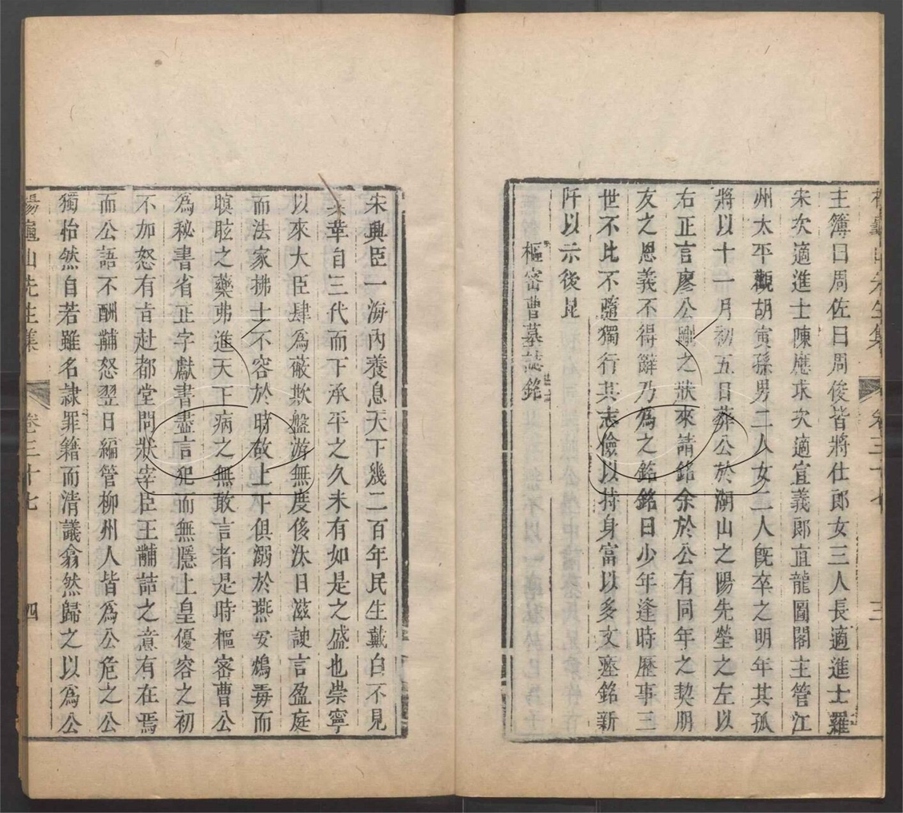 楊龜山先生集 卷三十七 三
主簿曰周佐曰周俊皆將仕郎女三人長適進士羅
宋次適進士陳應求次適宜義郎直龍圖閣主管江
州太平觀胡寅孫男二人女二人旣卒之明年其孤
將以十一月初五日葬公於湖山之陽先塋之左以
右正言廖公剛之狀來請銘余於公有同年之契朋
友之恩義不得辭乃為之銘銘曰少年逢時歷事三
世不比不隨獨行其志儉以持身富以多文瘞銘新
阡以示後昆
樞密曹墓誌銘
宋興臣一海內養息天下幾二百年民生戴白不見
兵革自三代而下承平之久未有如是之盛也崇寧
以來大臣肆為蔽欺盤游無度侈汰日滋諛言盈庭
而法家拂士不容於時故上下俱溺於燕安鴆毒而
瞑眩之藥弗進天下病之無敢言者是時樞密曹公
為秘書省正字獻書盡言犯而無隱上皇優容之初
不加怒有旨赴都堂問狀宰臣王黼詰之意有在焉
而公語不酬黼怒翌日編管柳州人皆為公危之公
獨怡然自若雖名隷罪籍而清議翕然歸之以為公
楊龜山先生集 卷三十七 四